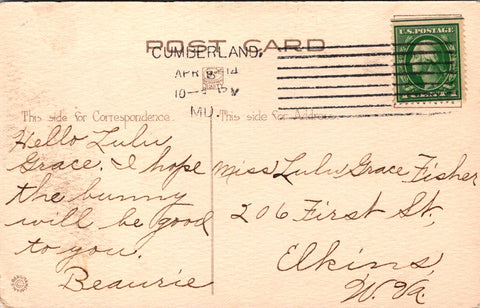 POST CARD
CUMBERLAND,
APR 8 14
10- P
MD.
U.S. POSTAGE
This side for Correspondence.
This side for Address.
Hello Lulu
Grace. I hope
the bunny
will be good
to you.
Beaurie
Miss Lulu Grace Fisher
206 First St.,
Elkins,
W Va